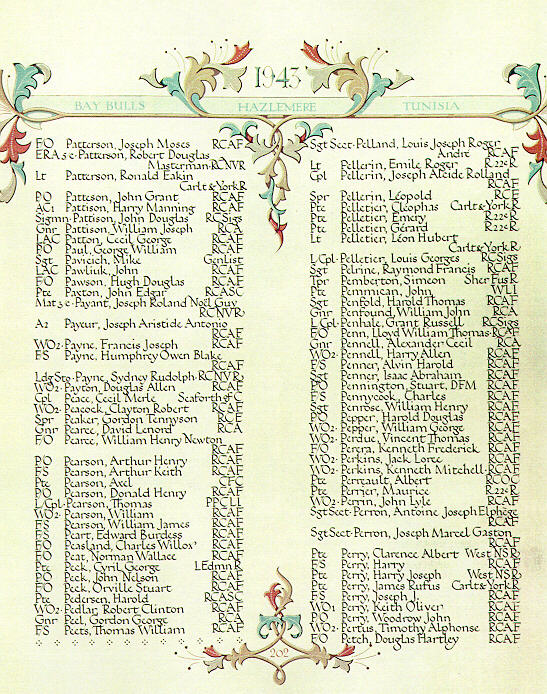 1943
BAY BULLS HAZLEMERE TUNISIA
F/O Patterson, Joseph Moses RCAF
ERA 5c Patterson, Robert Douglas
Masterman RCNVR
Lt Patterson, Ronald Eakin
Carlt & York R
P/O Patteson, John Grant RCAF
AC1 Pattison, Harry Manning RCAF
Sigmn Pattison, John Douglas RCSigs
Gnr Pattison, William Joseph RCA
LAC Patton, Cecil George RCAF
P/O Paul, George William RCAF
Sgt Paveich, Mike GenList
LAC Pawliuk, John RCAF
F/O Pawson, Hugh Douglas RCAF
Pte Paxton, John Edgar RCASC
Mat 3c Payant, Joseph Roland Noël Guy
RCNVR
A2 Payeur, Joseph Aristide Antonio
RCAF
WO2 Payne, Francis Joseph RCAF
FS Payne, Humphrey Owen Blake
RCAF
Ldg Sto Payne, Sydney Rudolph RCNVR
WO2 Payton, Douglas Allen RCAF
Cpl Peace, Cecil Merle Seaforth of C
WO2 Peacock, Clayton Robert RCAF
Spr Peaker, Gordon Tennyson RCE
Gnr Pearce, David Lenord RCA
F/O Pearce, William Henry Newton
RCAF
P/O Pearson, Arthur Henry RCAF
FS Pearson, Arthur Keith RCAF
Pte Pearson, Axel CFC
P/O Pearson, Donald Henry RCAF
L/Cpl Pearson, Thomas PPCLI
WO2 Pearson, William RCAF
FS Pearson, William James RCAF
FS Peart, Edward Burdess RCAF
F/O Peasland, Charles Willox RCAF
F/O Peat, Norman Wallace RCAF
Pte Peck, Cyril George L Edmn R
P/O Peck, John Nelson RCAF
F/O Peck, Orville Stuart RCAF
Pte Pedersen, Harold RCASC
WO2 Pedlar, Robert Clinton RCAF
Gnr Peel, Gordon George RCA
FS Peets, Thomas William RCAF
Sgt Sect Pelland, Louis Joseph Roger
André RCAF
Lt Pellerin, Emile Roger R22eR
Cpl Pellerin, Joseph Alcide Rolland
RCAF
Spr Pellerin, Léopold RCE
Pte Pelletier, Cléophas Carlt & York R
Pte Pelletier, Emery R22eR
Pte Pelletier, Gérard R22eR
Lt Pelletier, Léon Hubert
Carlt & York R
L/Cpl Pelletier, Louis Georges RCSigs
Sgt Pelrine, Raymond Francis RCAF
Tpr Pemberton, Simeon Sher Fus R
Pte Pemrican, John WLI
Sgt Penfold, Harold Thomas RCAF
Gnr Penfound, William John RCA
L/Cpl Penhale, Grant Russell RCSigs
F/O Penn, Lloyd William Thomas RCAF
Gnr Pennell, Alexander Cecil RCA
WO2 Pennell, Harry Allen RCAF
F/S Penner, Alvin Harold RCAF
Sgt Penner, Isaac Abraham RCAF
P/O Pennington, Stuart, DFM RCAF
FS Pennycook, Charles RCAF
Sgt Penrose, William Henry RCAF
P/O Pepper, Harold Douglas RCAF
WO2 Pepper, William George RCAF
WO2 Perdue, Vincent Thomas RCAF
F/O Perera, Kenneth Frederick RCAF
WO2 Perkins, Jack Loree RCAF
WO2 Perkins, Kenneth Mitchell RCAF
Pte Perreault, Albert RCOC
Pte Perrier, Maurice R22eR
WO2 Perrin, John Lyle RCAF
Sgt Sect Perron, Antoine Joseph Elphège
RCAF
Sgt Sect Perron, Joseph Marcel Gaston
RCAF
Pte Perry, Clarence Albert West NSR
FS Perry, Harry RCAF
Pte Perry, Harry Joseph West NSR
Pte Perry, James Rufus Carlt & York R
FS Perry, Joseph J. RCAF
WO1 Perry, Keith Oliver RCAF
P/O Perry, Woodrow John RCAF
WO2 Pertus, Timothy Alphonse RCAF
F/O Petch, Douglas Hartley RCAF
202